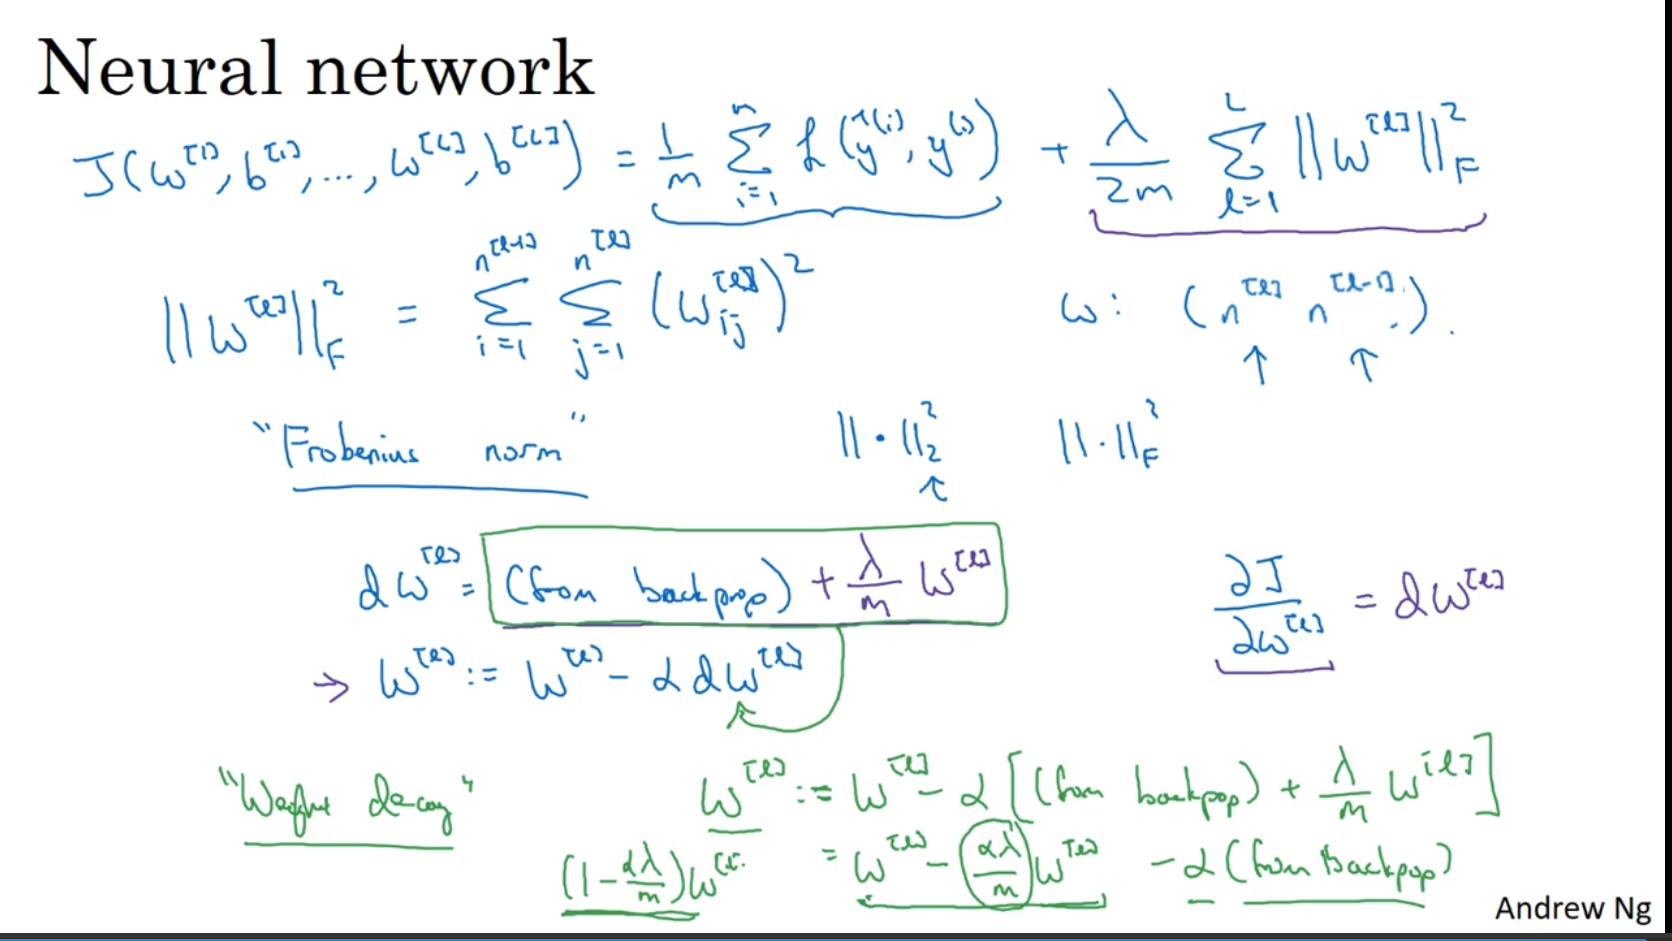 Neural network
J(w^[1], b^[1], ..., w^[L], b^[L]) = 1/m ∑_{i=1}^{n} ℒ(ŷ^(i), y^(i)) + λ/2m ∑_{l=1}^{L} ||w^[l]||_F^2
||w^[l]||_F^2 = ∑_{i=1}^{n^[l-1]} ∑_{j=1}^{n^[l]} (w_ij^[l])^2 w: (n^[l] n^[l-1]).
"Frobenius norm" ||·||_2^2 ||·||_F^2
dw^[l] = (from backprop) + λ/m w^[l] ∂J/∂w^[l] = dw^[l]
→ w^[l] := w^[l] - α dw^[l]
"Weight decay" w^[l] := w^[l] - α[(from backprop) + λ/m w^[l]]
(1 - αλ/m) w^[l] = w^[l] - αλ/m w^[l] - α(from backprop)
Andrew Ng